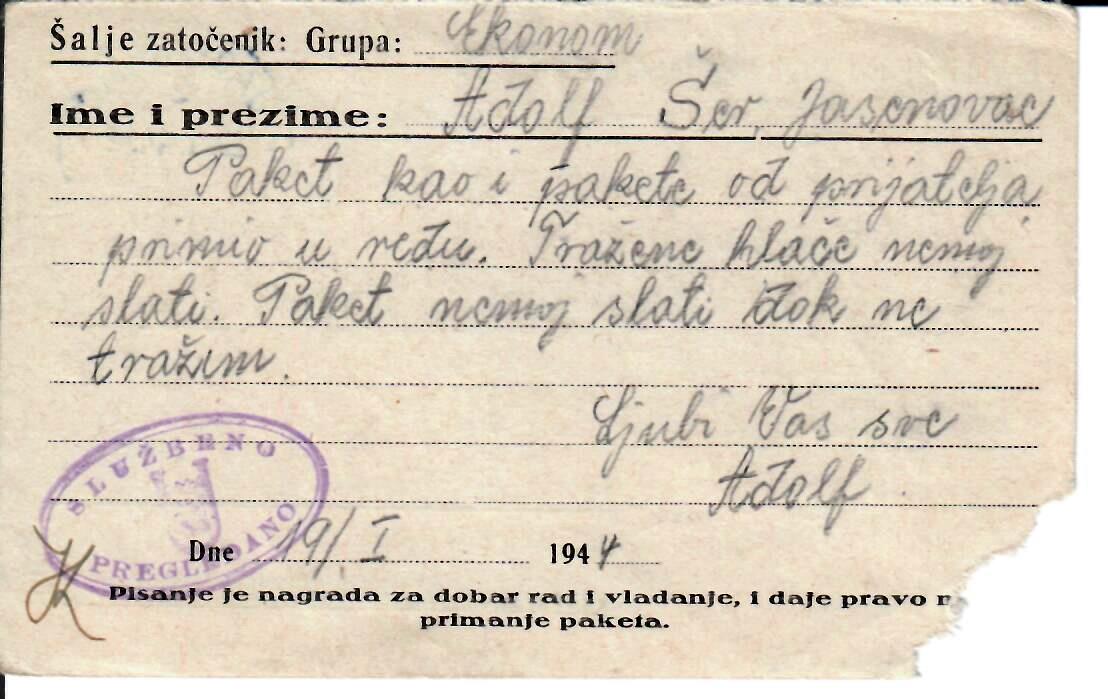 Šalje zatočenik: Grupa: Ekonom
Ime i prezime: Adolf Šer, Jasenovac
Paket kao i pakete od prijatelja
primio u redu. Tražene hlače nemoj
slati. Paket nemoj slati dok ne
tražim.
Ljubi Vas sve
Adolf
SLUŽBENO
PREGLEDANO
Dne 19/I 1944
Pisanje je nagrada za dobar rad i vladanje, i daje pravo n
primanje paketa.